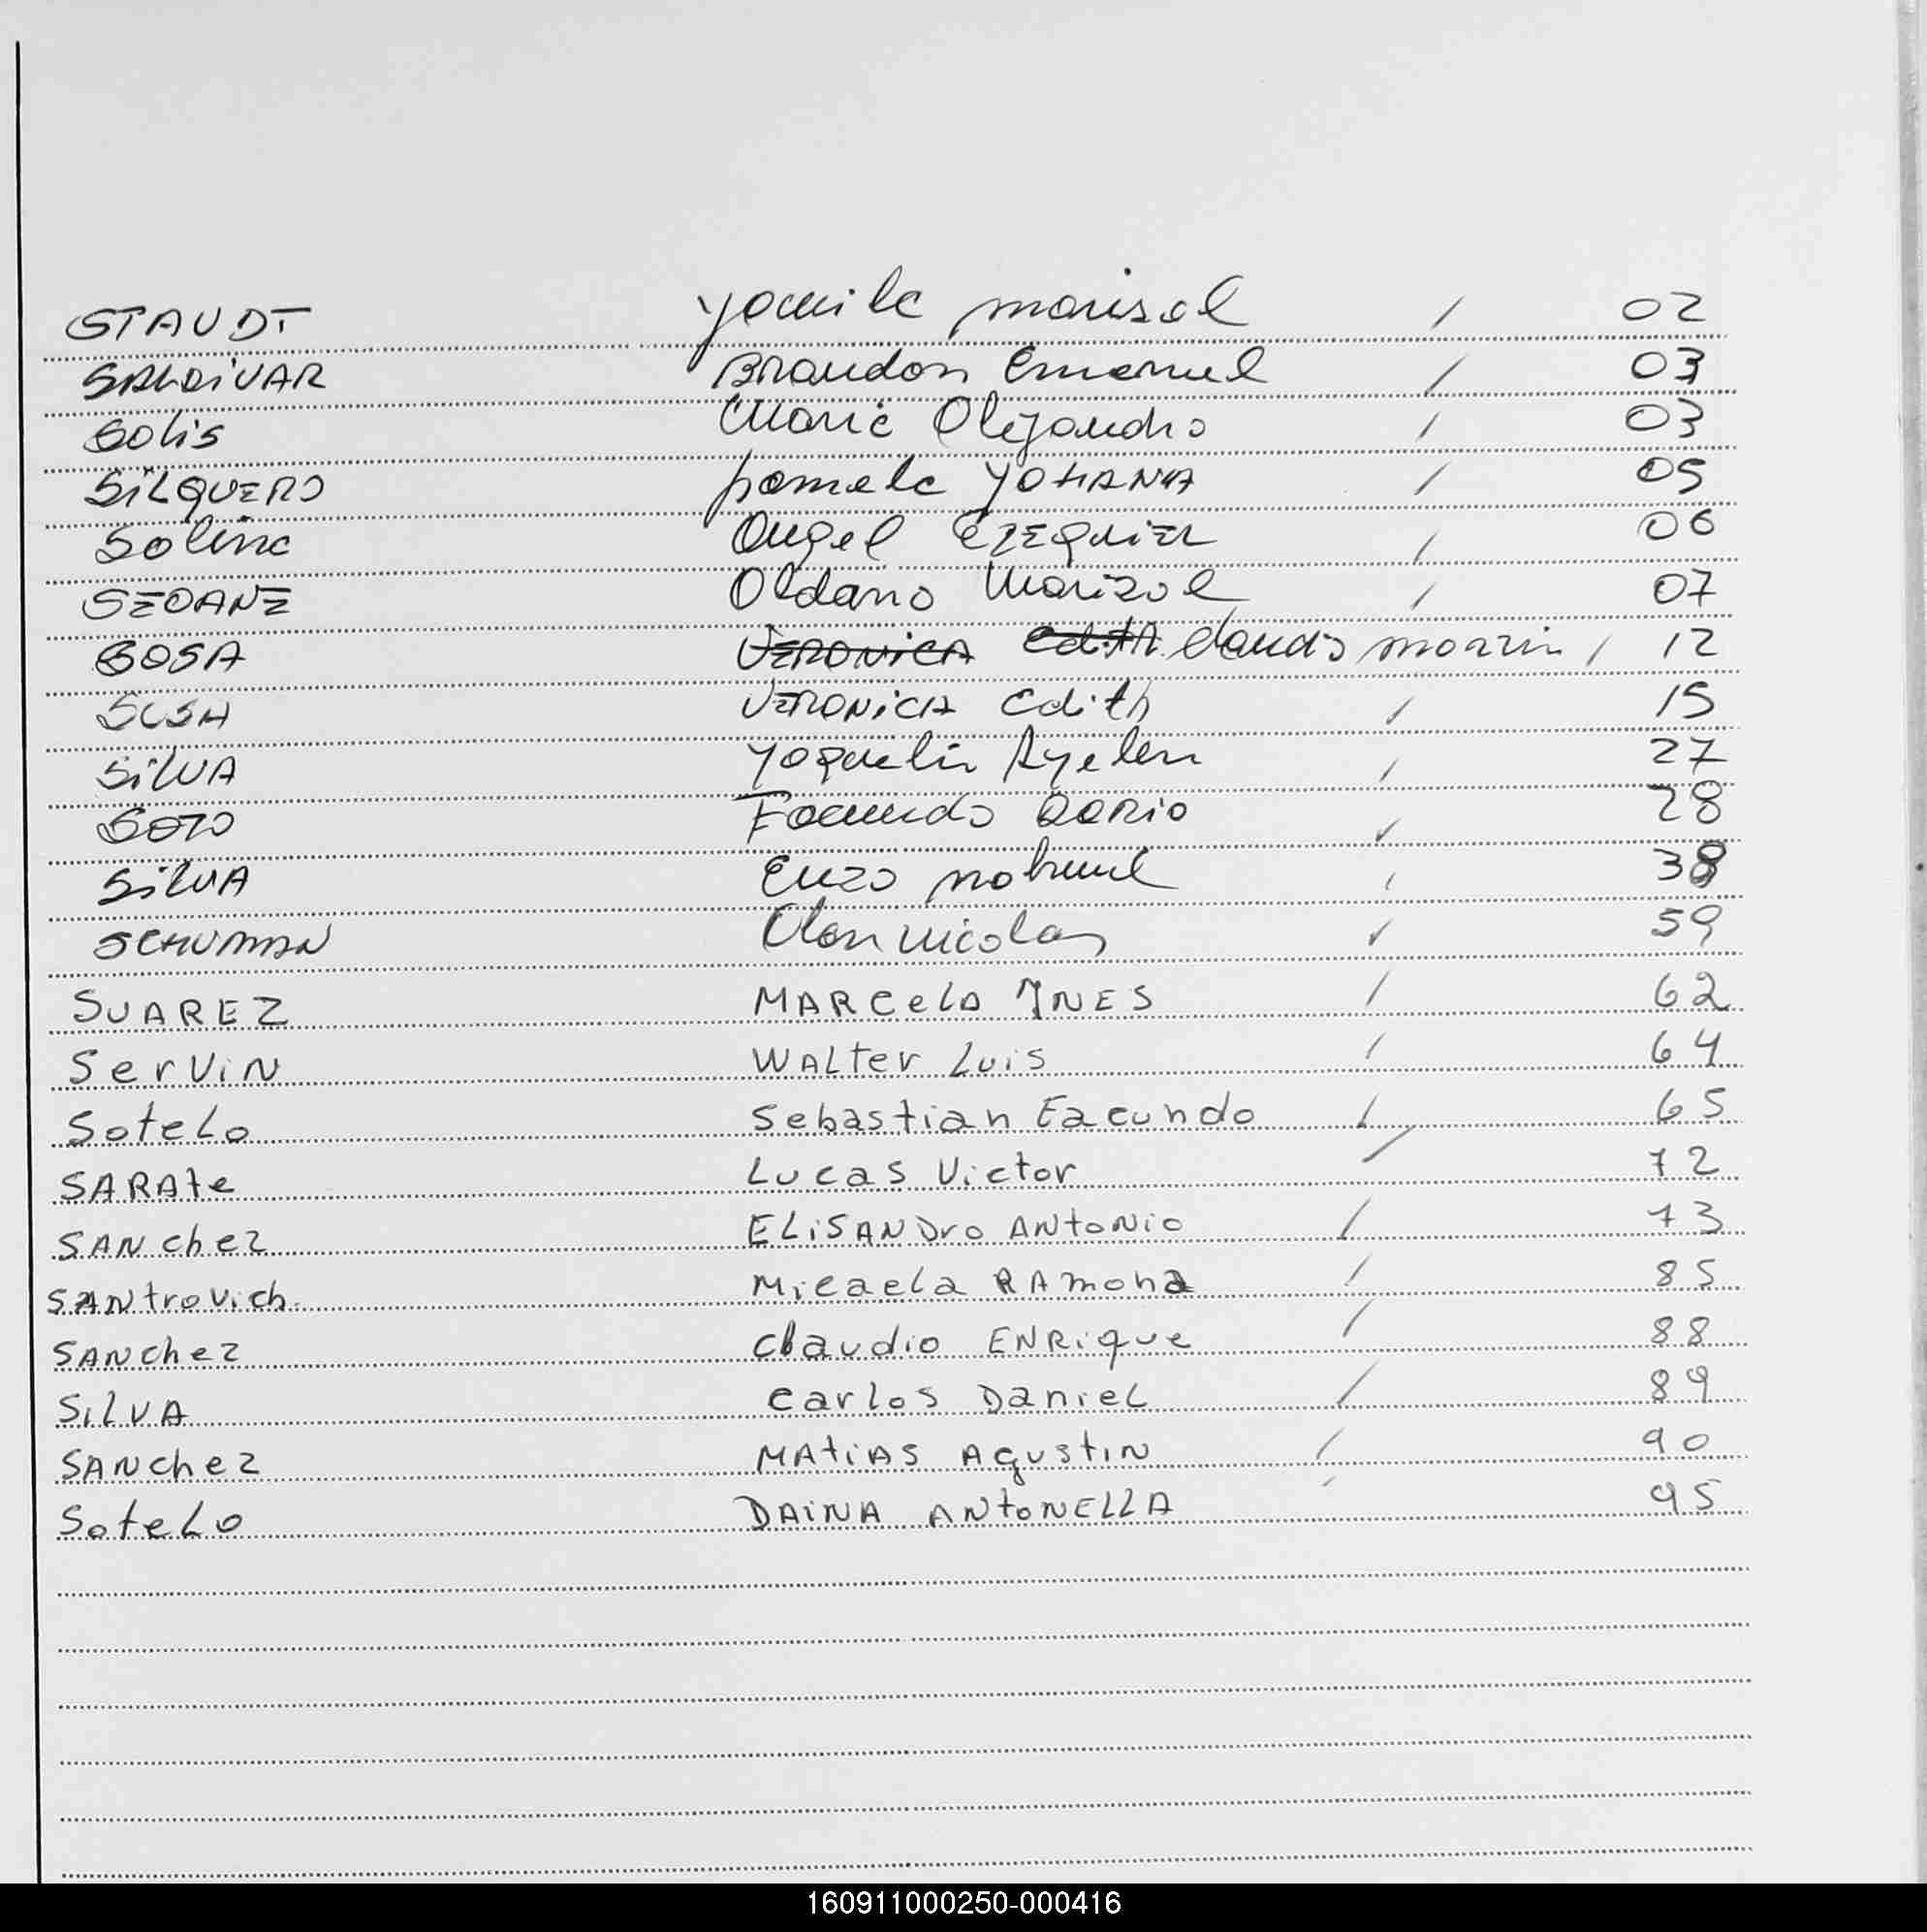 STAUDT Yamila Marisol / 02
SALDiVAR Brandon Emanuel / 03
Solis Maria Alejandra / 03
SiLQUERO Pamela YOHANA / 05
Solina Angel EZEQUIEL / 06
SEOANE Aldana Marisol / 07
SOSA VERONiCA Edith Claudio / 12
SOSA VERONiCA Edith / 15
SiLVA Yaquelin Ayelen / 27
SOTO Facundo DARio / 28
SiLVA Enzo Nahuel / 38
SCHUMAN Alan Nicolas / 59
SUAREZ MARCeLA INES / 62
SerViN WALter Luis / 64
SoteLo Sebastian Facundo / 65
SARAte Lucas Victor / 72
SANchez ELiSANDro ANtoNio / 73
SANtrovich Micaela RAmona / 85
SANchez Claudio ENRique / 88
SiLVA Carlos DanieL / 89
SANchez MAtiAS AgustiN / 90
SoteLo DAiNA ANtoNELLA / 95
160911000250-000416